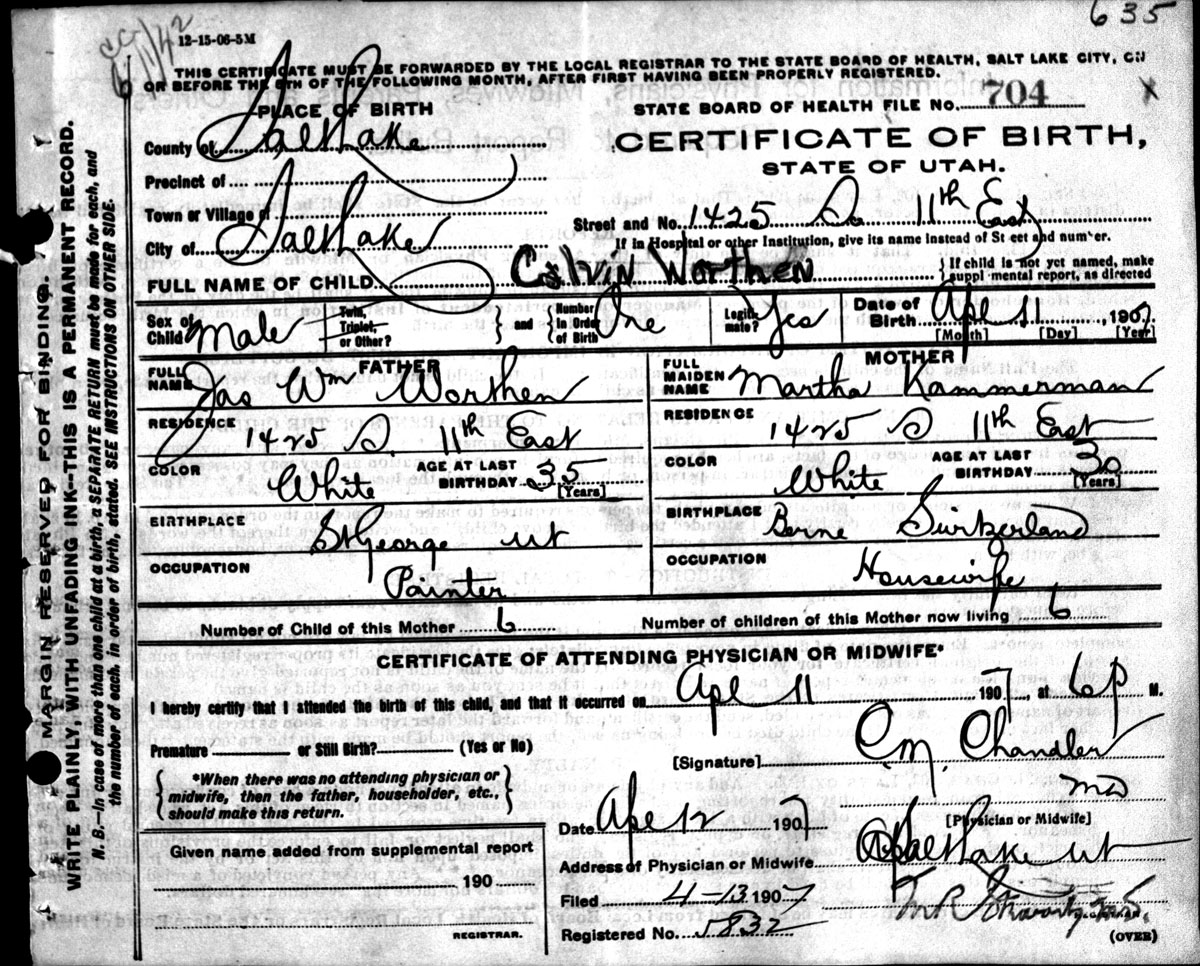 635
12-15-06-5M
THIS CERTIFICATE MUST BE FORWARDED BY THE LOCAL REGISTRAR TO THE STATE BOARD OF HEALTH, SALT LAKE CITY, ON
OR BEFORE THE 5TH OF THE FOLLOWING MONTH, AFTER FIRST HAVING BEEN PROPERLY REGISTERED.
PLACE OF BIRTH
STATE BOARD OF HEALTH FILE NO. 704
County of Salt Lake
CERTIFICATE OF BIRTH,
STATE OF UTAH.
Precinct of
Town or Village of
Street and No. 1425 So 11th East
City of Salt Lake
If in Hospital or other Institution, give its name instead of Street and number.
FULL NAME OF CHILD Calvin Worthen
{ If child is not yet named, make supplemental report, as directed
Sex of Child Male
Twin, Triplet, or Other? } and { Number in Order of Birth One
Legitimate? Yes
Date of Birth Apl 11, 1907.
[Month] [Day] [Year]
FATHER
FULL NAME Jas Wm Worthen
RESIDENCE 1425 S. 11th East
COLOR White
AGE AT LAST BIRTHDAY 35
[Years]
BIRTHPLACE St George Ut
OCCUPATION Painter
MOTHER
FULL MAIDEN NAME Martha Kammerman
RESIDENCE 1425 S 11th East
COLOR White
AGE AT LAST BIRTHDAY 30
[Years]
BIRTHPLACE Berne Switzerland
OCCUPATION Housewife
Number of Child of this Mother 6
Number of children of this Mother now living 6
CERTIFICATE OF ATTENDING PHYSICIAN OR MIDWIFE*
I hereby certify that I attended the birth of this child, and that it occurred on Apl 11 1907, at 6 P M.
Premature or Still Birth? (Yes or No)
[Signature] C.M. Chandler
MD
[Physician or Midwife]
{ *When there was no attending physician or midwife, then the father, householder, etc., should make this return. }
Date Apl 12 1907
Given name added from supplemental report
190
REGISTRAR.
Address of Physician or Midwife Salt Lake Ut
Filed 4-13 1907
Registered No. 5832
(OVER)
MARGIN RESERVED FOR BINDING.
WRITE PLAINLY, WITH UNFADING INK--THIS IS A PERMANENT RECORD.
N. B.--In case of more than one child at a birth, a SEPARATE RETURN must be made for each, and
the number of each, in order of birth, stated. SEE INSTRUCTIONS ON OTHER SIDE.